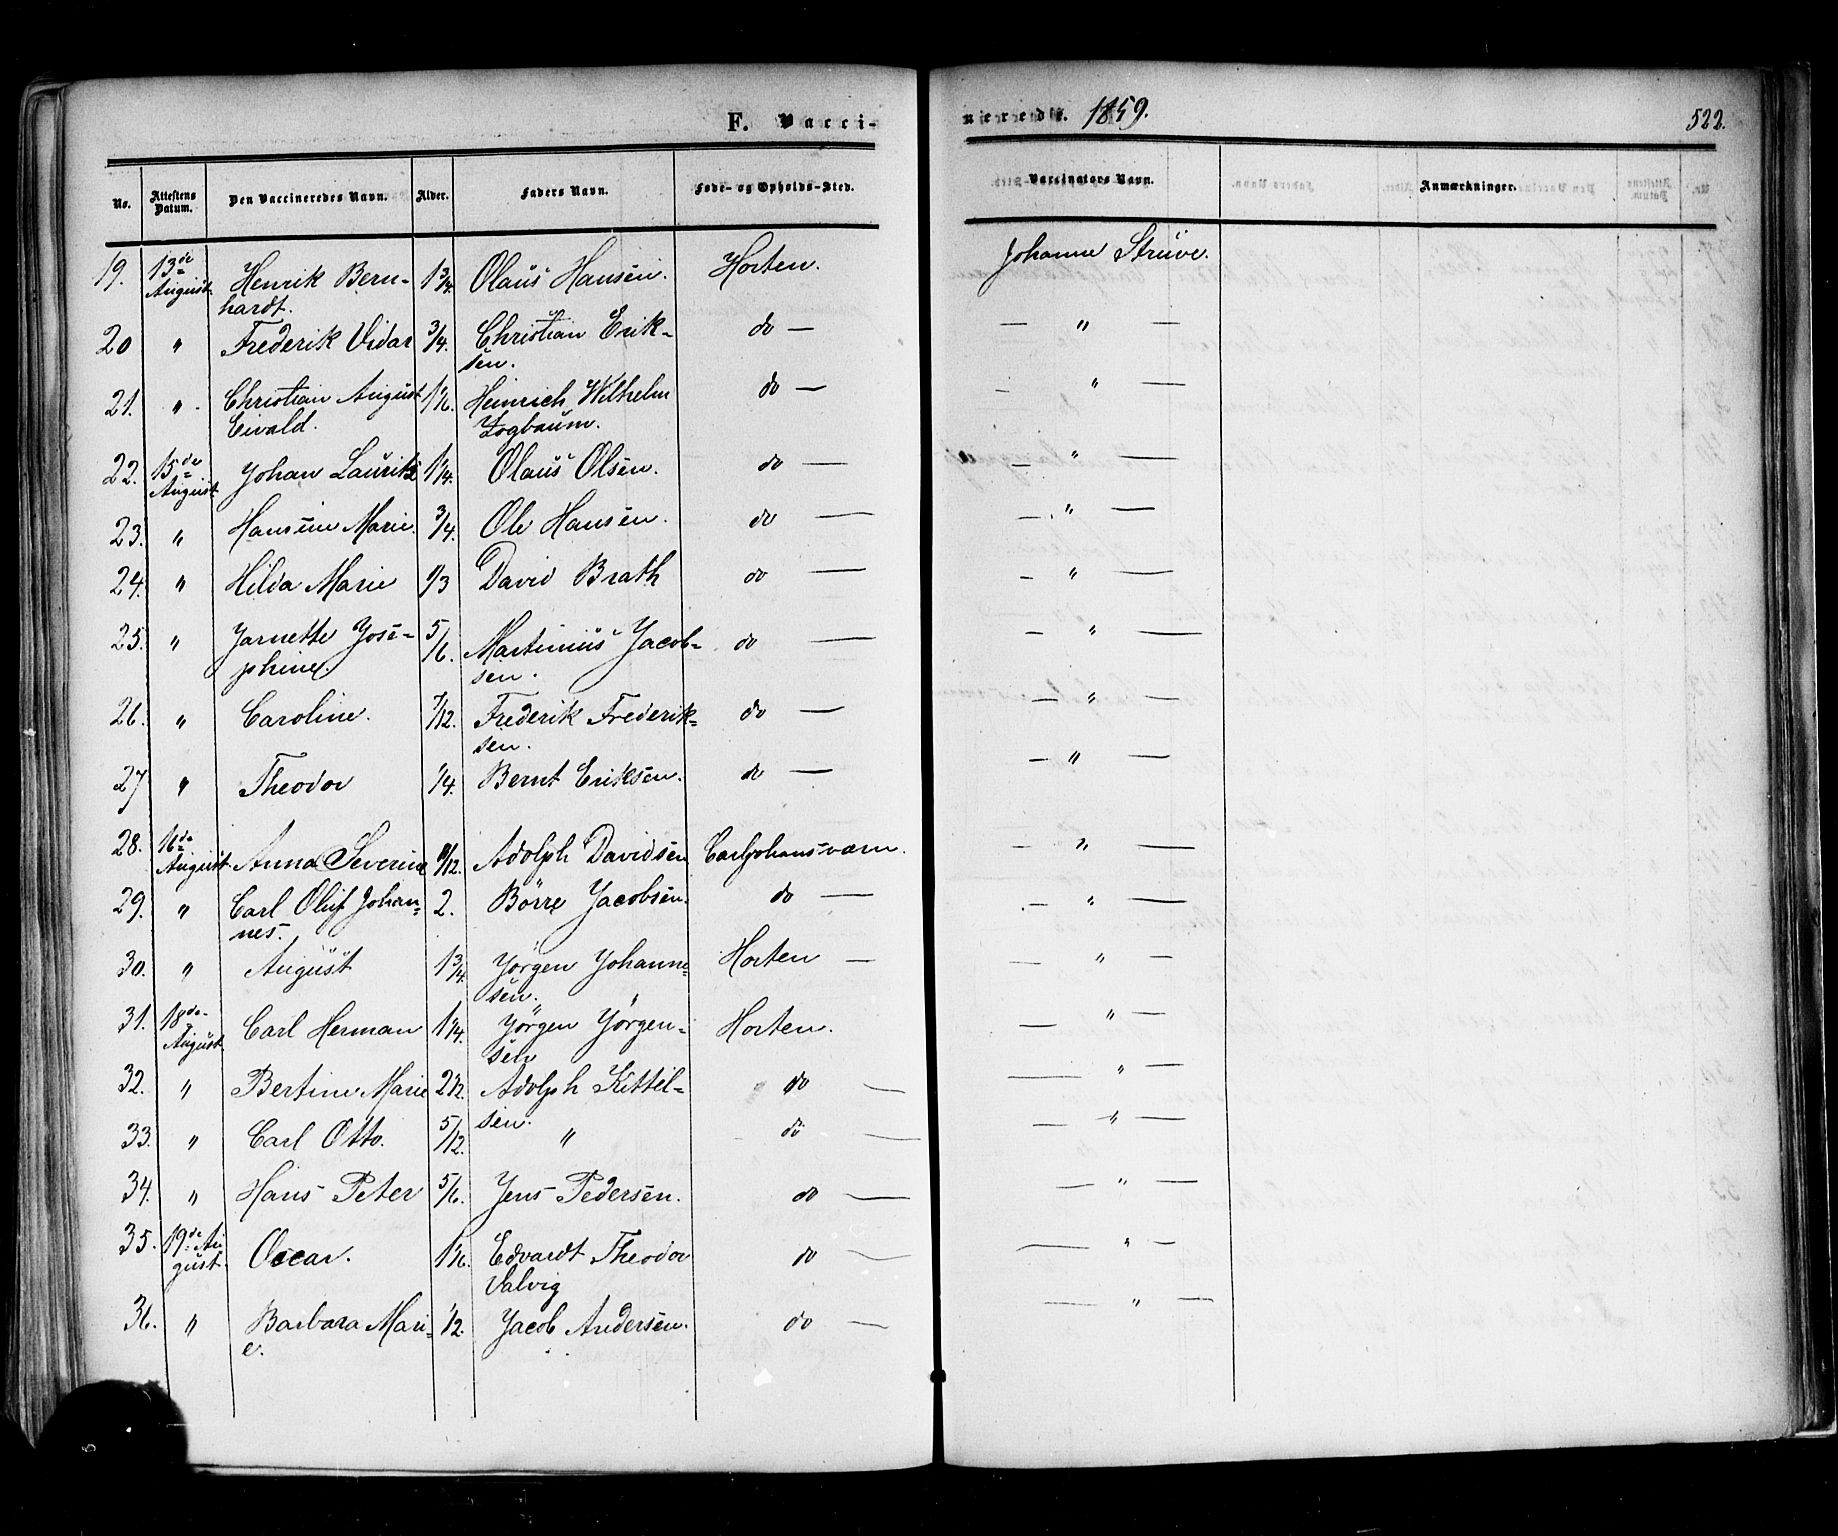 F. Vacci-
nerede. 1859.
522.
No. Attestens Datum. Den Vaccineredes Navn. Alder. Faders Navn. Føde- og Opholds-Sted. Vaccinators Navn. Anmærkninger.
19. 13de August Henrik Bern- 1 3/4. Olaus Hansen. Horten. Johanne Strüve.
hardt.
20 " Frederik Vidar 3/4. Christian Erik- do — — " —
sen.
21. " Christian August 1 1/6. Heinrich Wilhelm do — — " —
Eivald. Logbaum.
22. 15de August Johan Lauritz 1 1/4. Olaus Olsen. do — — " —
23. " Hansine Marie. 3/4. Ole Hansen. do — — " —
24. " Hilda Marie 1/3 David Brath do — — " —
25. " Jarnette Jose- 5/6. Martinius Jacob- do — — " —
phine. sen.
26. " Caroline. 7/12. Frederik Frederik- do — — " —
sen.
27 " Theodor 1/4. Bernt Eriksen. do — — " —
28. 16de August Anna Severine /12. Adolph Davidsen Carljohansværn. — " —
29. " Carl Oluf Johan- 2. Börre Jacobsen. do — — " —
nes.
30. " August 1 3/4. Jörgen Johanne- Horten — — " —
sen.
31. 18de August Carl Herman 1 1/4. Jörgen Jörgen- Horten. — " —
sen
32. " Bertine Marie 2 1/2. Adolph Kittil- do — — " —
sen.
33. " Carl Otto. 5/12. " do — — " —
34. " Hans Peter 5/6. Jens Pedersen. do — — " —
35. 19de Au- Occar. 1 1/6. Edvardt Theodor do — — " —
gust. Valvig
36. " Barbara Mari- 1/2. Jacob Andersen. do — — " —
e.